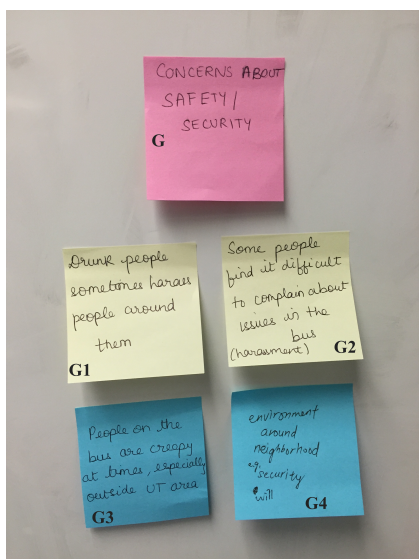 CONCERNS ABOUT
SAFETY/
SECURITY
G
Drunk people
sometimes harass
people around
them
G1
Some people
find it difficult
to complain about
issues in the
bus
(harassment)
G2
People on the
bus are creepy
at times, especially
outside UT area
G3
environment
around
neighborhood
e.g.
security
will
G4